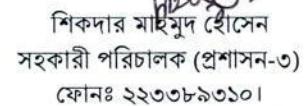 শিকদার মাহমুদ হোসেন
সহকারী পরিচালক (প্রশাসন-৩)
ফোনঃ ২২৩৩৮৯৩১০।